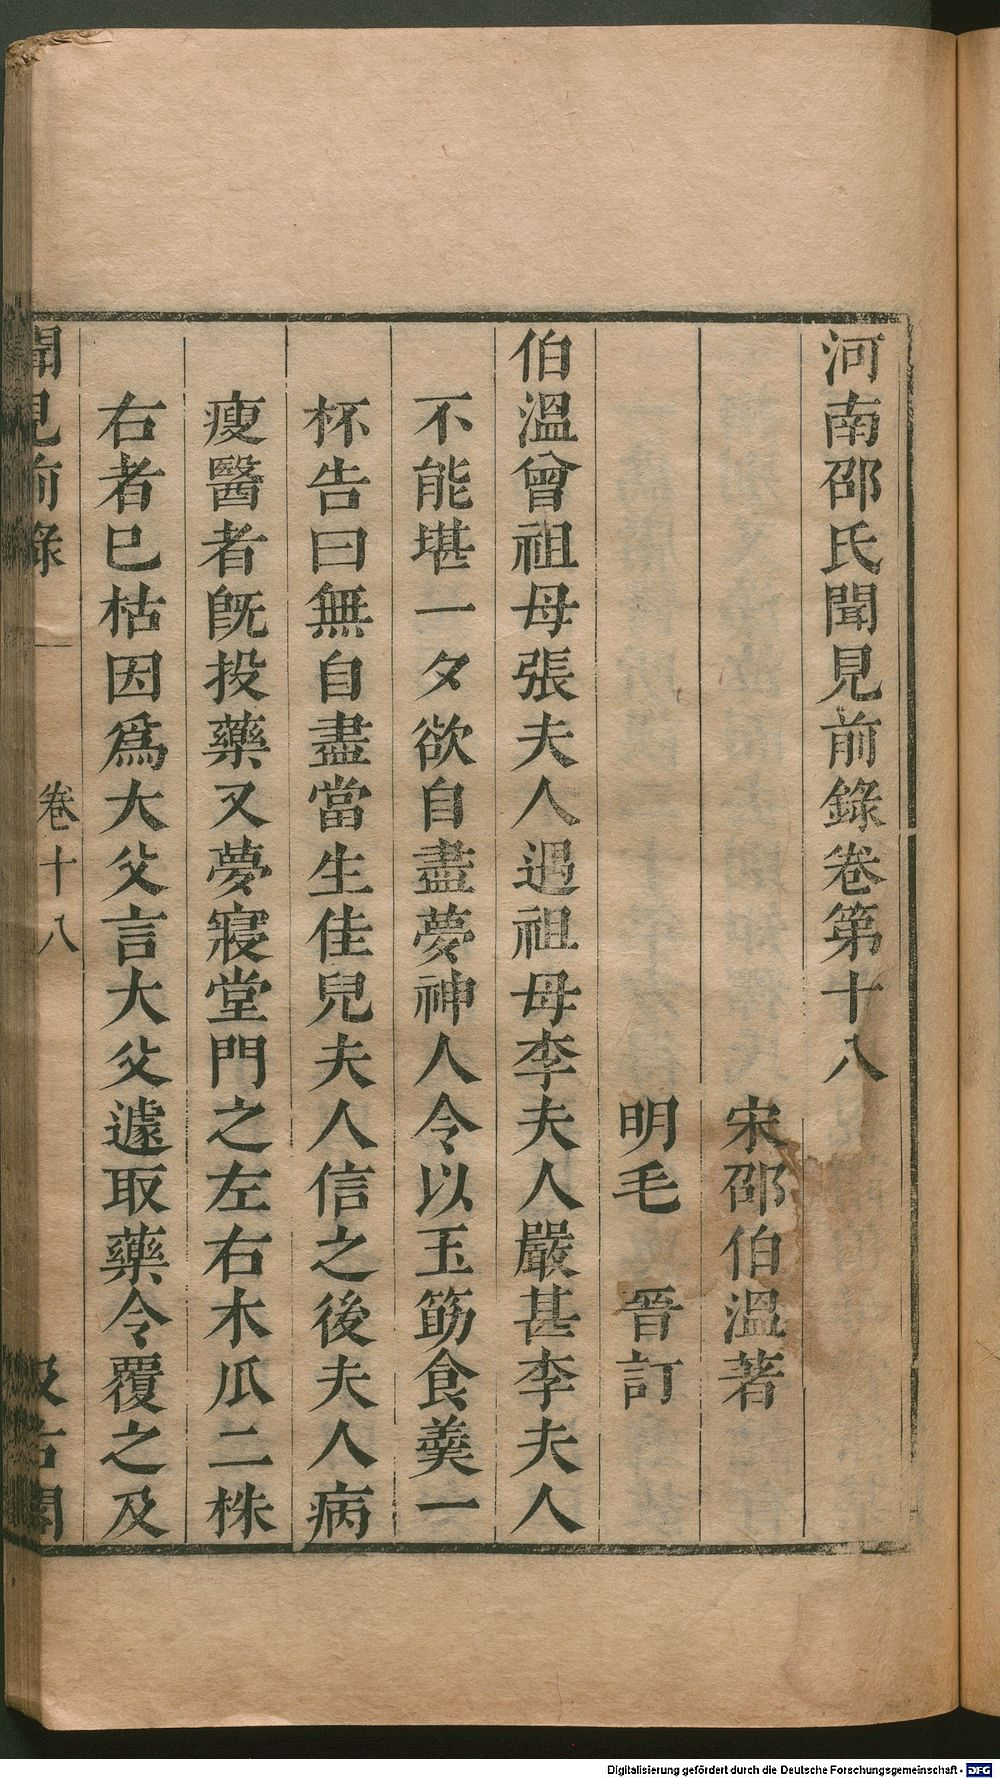 河南邵氏聞見前錄卷第十八
宋邵伯溫著
明毛　晉訂
伯溫曾祖母張夫人遇祖母李夫人嚴甚李夫人
不能堪一夕欲自盡夢神人令以玉筯食羹一
杯告曰無自盡當生佳兒夫人信之後夫人病
瘦醫者旣投藥又夢寢堂門之左右木瓜二株
右者巳枯因爲大父言大父遽取藥令覆之及
聞見前錄
卷十八
汲古閣
Digitalisierung gefördert durch die Deutsche Forschungsgemeinschaft - DFG